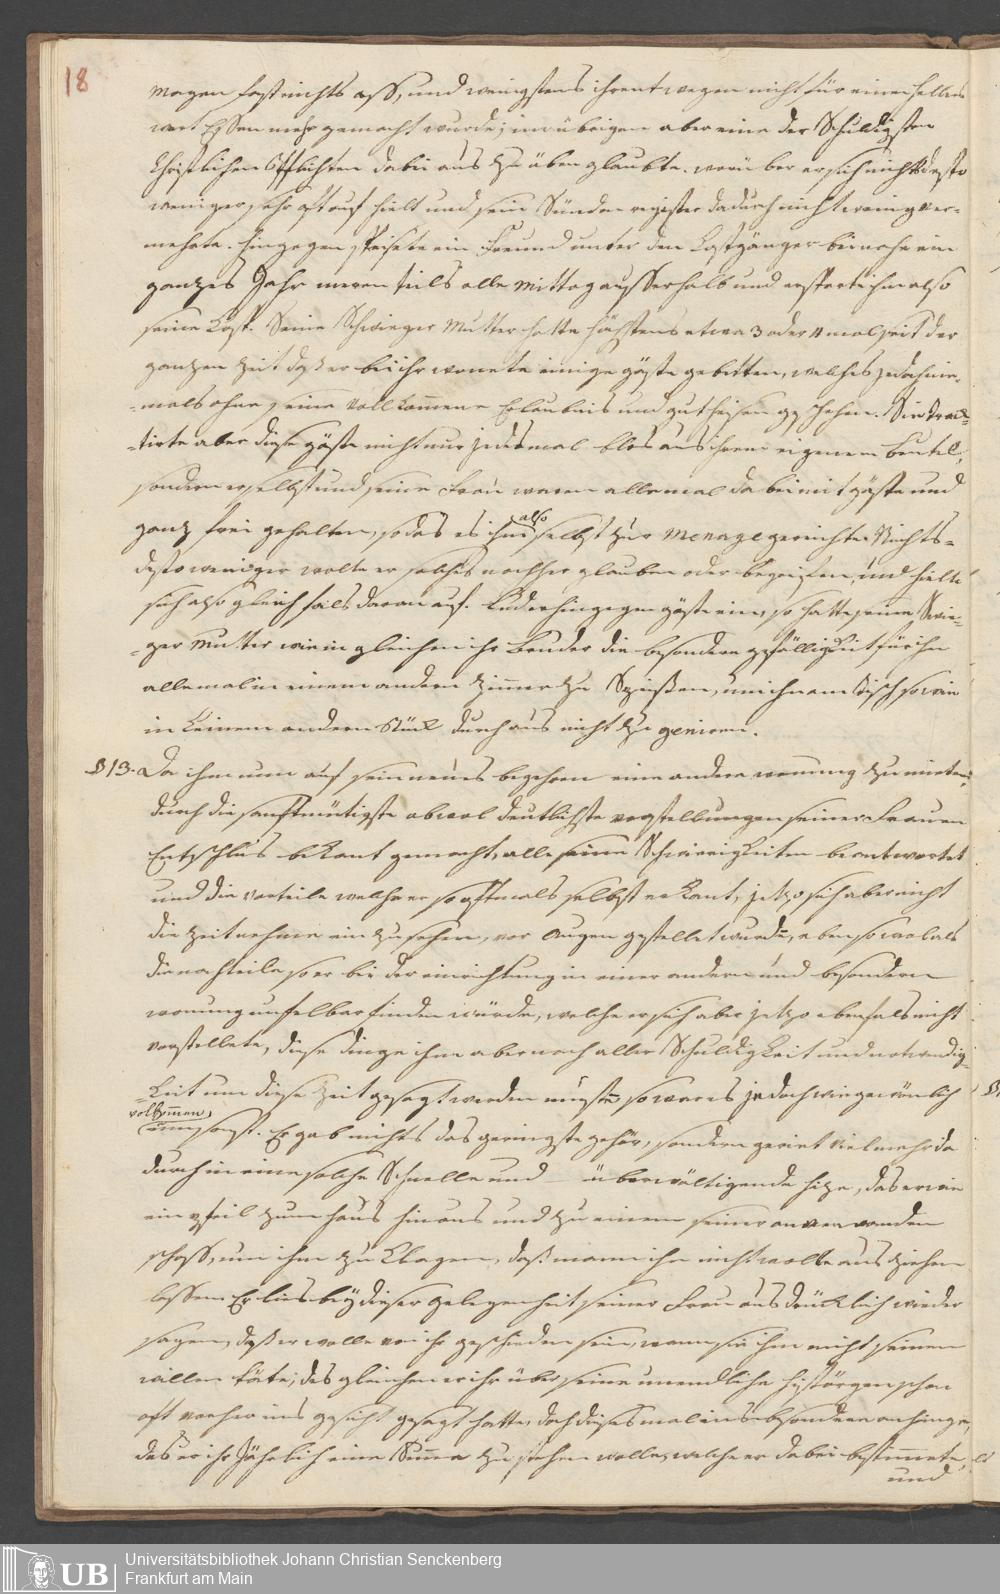 18
morgen fast nichts ass, und wenigstens ihrentwegen nicht für einen heller
wert Essen mehr gemacht wurde; im übrigen aber eine der Schuldigsten
Christlichen Pflichten dabei aus zu üben glaubte. worüber er sich nichts desto
weniger sehr oft auf hielt und sein Sünden register dadurch nicht wenig ver-
mehrte. hingegen speisete ein Freund unter den Kostgänger beinahe ein
ganzes Jahr merenteils alle Mittag ausserhalb und ersparte ihm also
seine Kost. Seine Schwieger Mutter hatte höchstens etwa 3 oder 4 mal seit der
ganzen Zeit das er bei ihr wonete einige gäste gebetten, welches jedoch nie-
-mals ohne seine vollkommene Erlaubnis und gutheisen geschehen. Sie trac-
-tirte aber diese gäste nicht nur jedesmal blos aus ihrem eigenem beutel,
sondern er selbst und seine Frau waren allemal dabei mit gäste und
ganz frei gehalten, so das es ihm also selbst zur Menage gereichte Nichts-
desto weniger wolte er solches nachher glauben oder begreifen, und hielte
sich also gleich fals daran auf. Lude er hingegen gäste ein, so hatte seine Swie-
-ger Mutter wie im gleichen ihr bruder die besondere gefälligkeit für ihn
allemal in einem andern Zimmer zu Speißen, um ihn am Tisch so wie
in keinem andern Stück durchaus nicht zu geniren.
§ 13. Da ihm nun auf sein neues begehren eine andere wonung zu mieten,
durch die sanftmütigste obwol deutlichste vorstellungen seiner Frauen
Entschlus bekant gemacht, alle seine Schwierigkeiten beantwortet
und die vorteile welche er so oftmals selbst erkant, jetzo sich aber nicht
die Zeit nehme ein zu sehen, vor Augen gestellet wurde, eben so wol als
die nachteile so er bei der einrichtung in einer andern und besondern
wonung unfelbar finden würde, welche er sich aber jetzo ebenfals nicht
vorstellete, diese dinge ihm aber nach aller Schuldigkeit und notwendig-
-keit um diese Zeit gesagt werden musten so war es jedoch wie gewönlich
vollkommen
umsonst. Er gab nichts das geringste gehör, sondern geriet vielmehr da
durch in eine solche Schnelle und überwältigende hize, das er wie
ein pfeil zum haus hinaus und zu einem seiner anverwanden
schoss, um ihm zu klagen, daß mann ihn nicht wolte aus ziehen
lassen Er lies bey dieser gelegenheit seiner Frau ausdrücklich wieder
sagen, daß er wolle von ihr geschieden sein, wann sie ihm nicht seinen
willen täte; des gleichen er ihr über seine unendliche histörgen schon
oft vorher ins gesicht gesagt hatte, doch dieses mal ins besondere anhinge,
das er ihr Jährlich eine Summe zu stehen wolle, welche er dabei bestimmete,
und
Universitätsbibliothek Johann Christian Senckenberg
Frankfurt am Main
UB